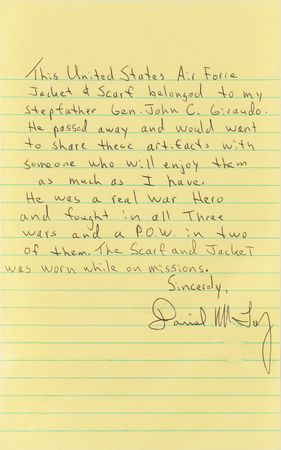 This United States Air Force
Jacket & Scarf belonged to my
stepfather Gen. John C. Giraudo.
He passed away and would want
to share these artifacts with
someone who will enjoy them
as much as I have.
He was a real war Hero
and fought in all Three
wars and a P.O.W. in two
of them. The Scarf and Jacket
was worn while on missions.
Sincerly,
Daniel